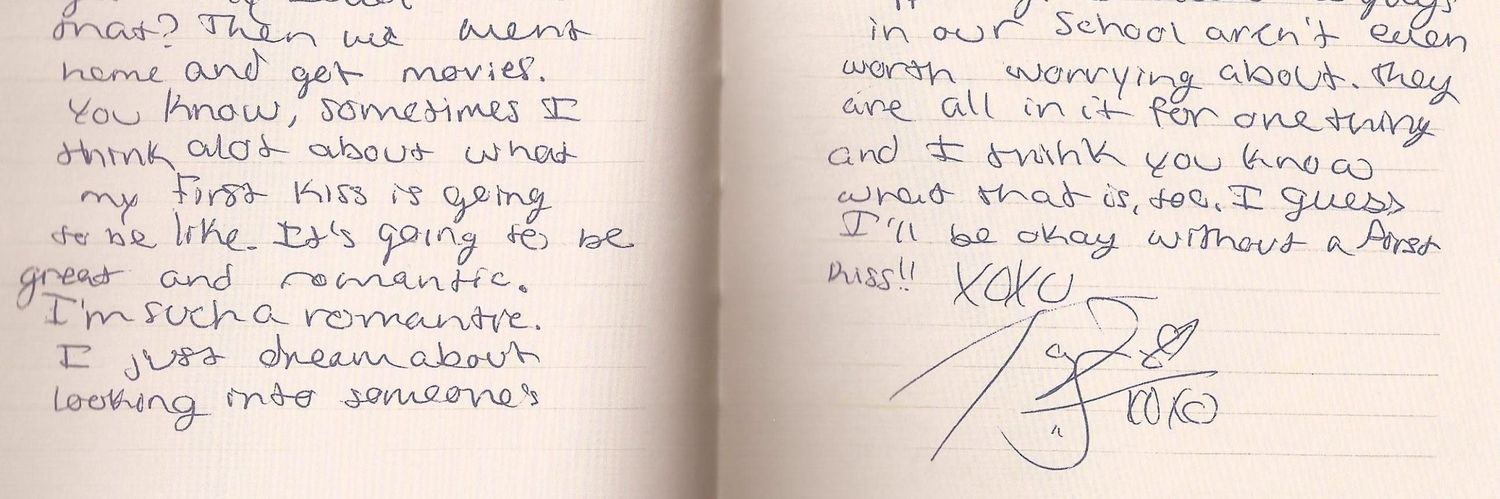 that? Then we went
home and get movies.
You know, sometimes I
think alot about what
my first kiss is going
to be like. It's going to be
great and romantic.
I'm such a romantic.
I just dream about
looking into someone's
guys
in our school aren't even
worth worrying about. They
are all in it for one thing
and I think you know
what that is, too. I guess
I'll be okay without a first
kiss!! XOXO
XOXO